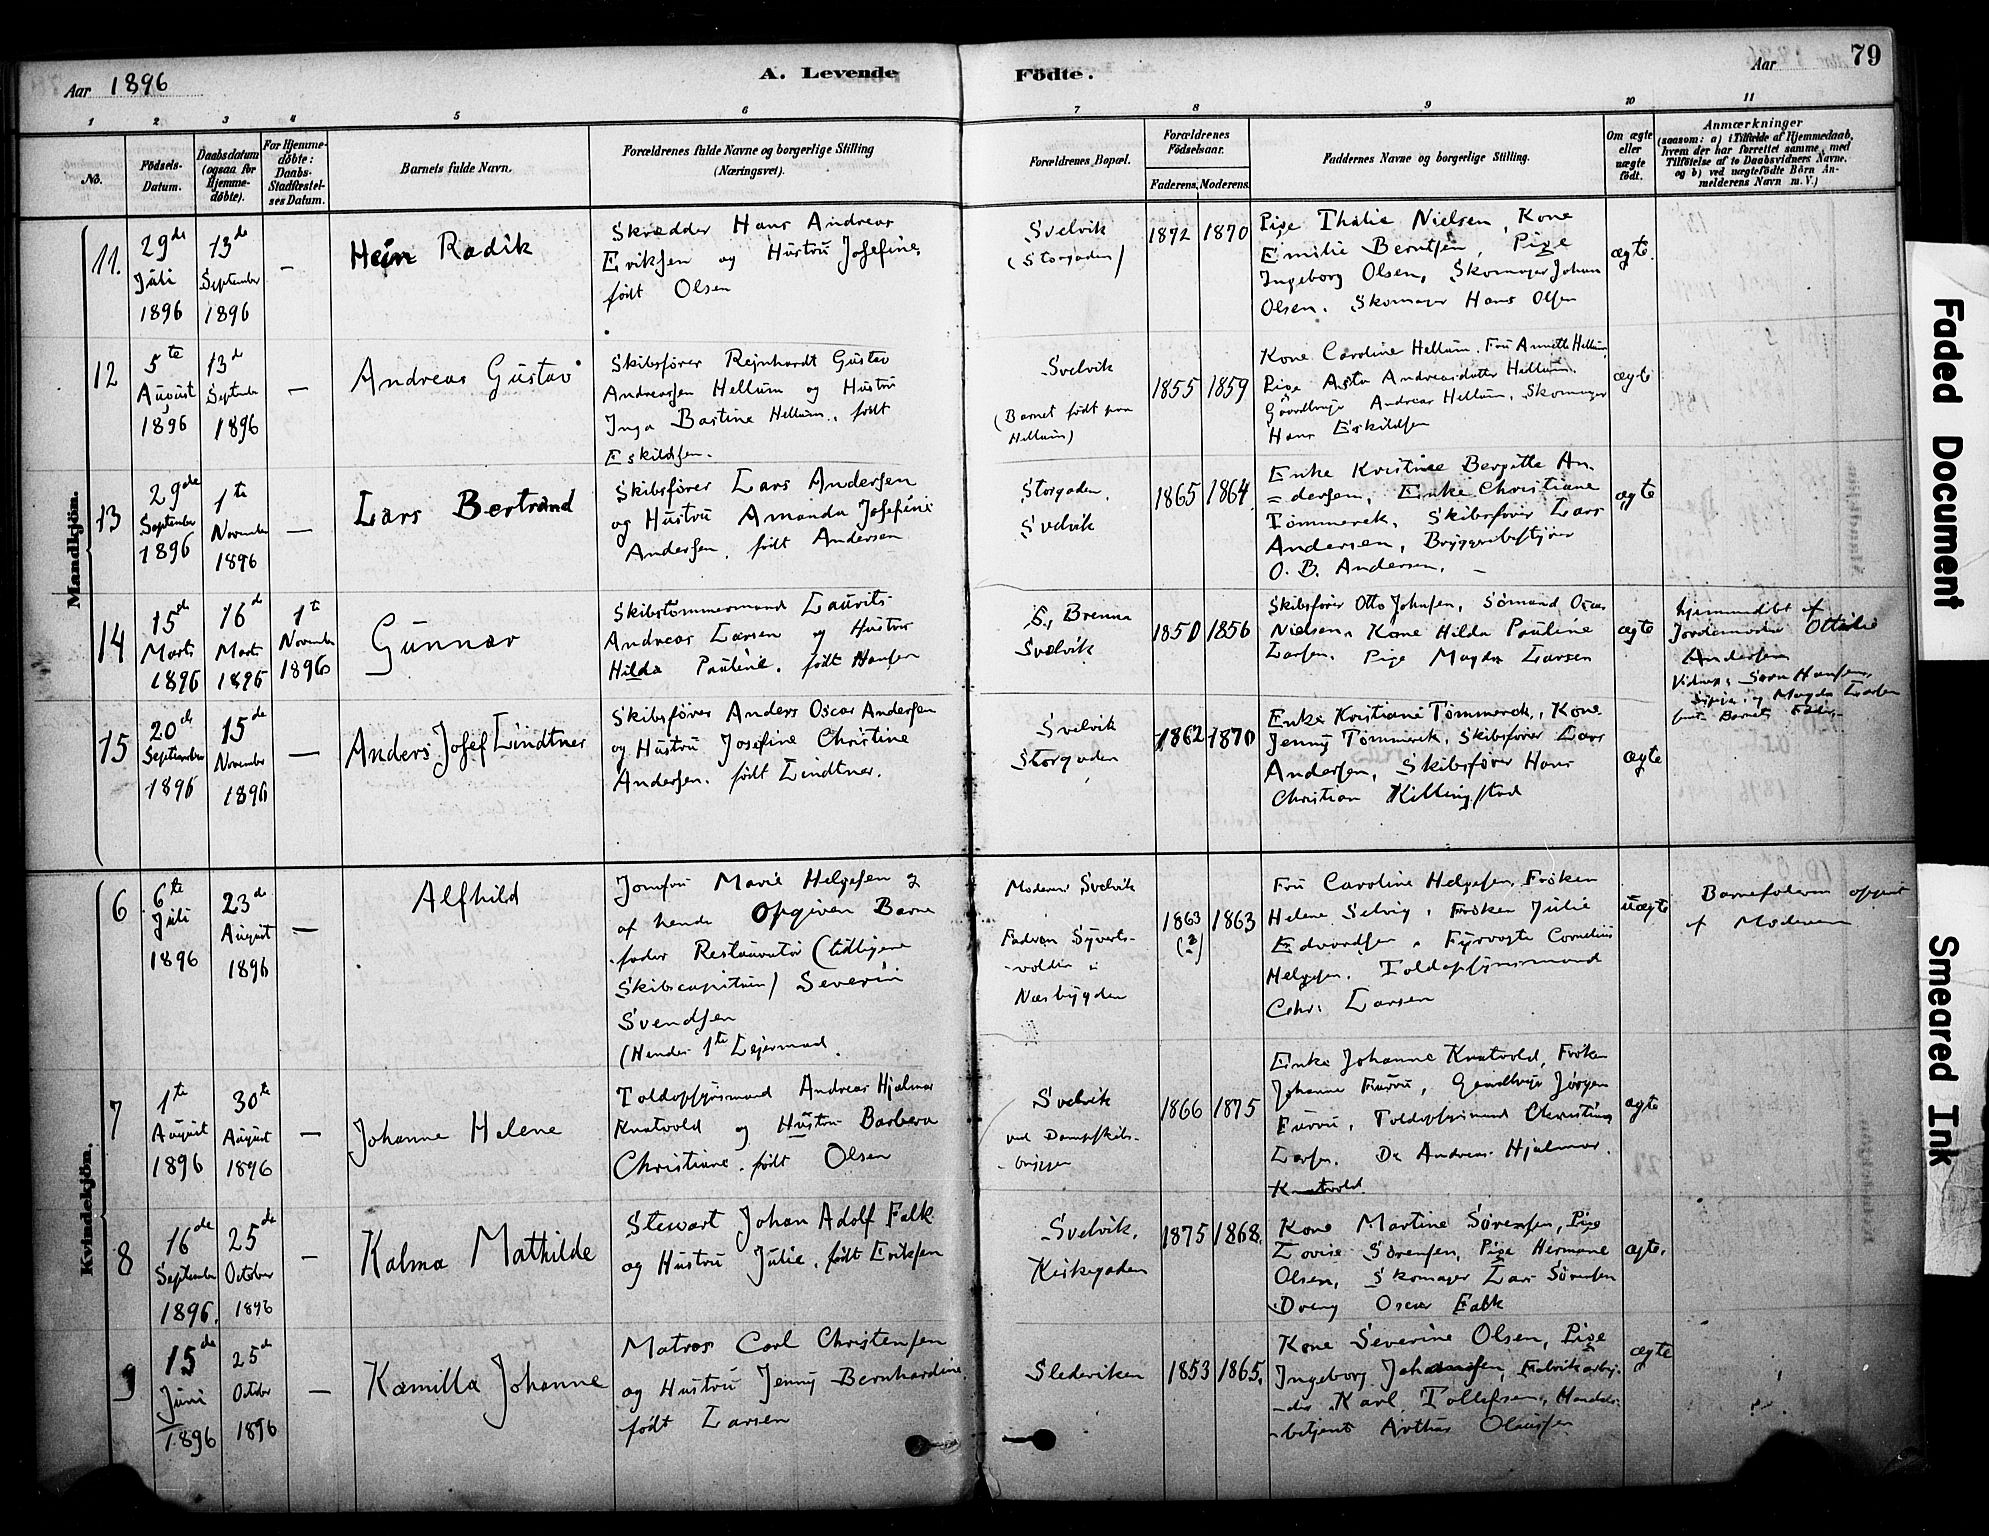 Aar 1896
A. Levende Födte.
Aar
79
1
2
3
4
5
6
7
8
9
10
11
No.
Födsels-
Datum.
Daabsdatum
(ogsaa for
Hjemme-
döbte).
For Hjemme-
döbte:
Daabs-
Stadfæstel-
ses Datum.
Barnets fulde Navn.
Forældrenes fulde Navne og borgerlige Stilling
(Næringsvei).
Forældrenes Bopæl.
Forældrenes
Födselsaar.
Faderens.
Moderens.
Faddernes Navne og borgerlige Stilling.
Om ægte
eller
uægte
födt.
Anmærkninger
(saasom: a) i Tilfælde af Hjemmedaab,
hvem der har forrettet samme, med
Tilföielse af to Daabsvidners Navne,
og b) ved uægtefödte Börn An-
melderens Navn m. V.)
Mandkjön.
11.
29de
Juli
1896
13de
September
1896
—
Hein Radik
Skrædder Hans Andreas
Eriksen og Hustru Josefine,
født Olsen
Svelvik
(Storgaden)
1872
1870
Pige Thalie Nielsen, Kone
Emilie Berntsen, Pige
Ingeborg Olsen, Skomager Johan
Olsen, Skomager Hans Olsen
ægte.
12
5te
August
1896
13d
September
1896
—
Andreas Gustav
Skibsfører Rejnhardt Gustav
Andreassen Hellum og Hustru
Inga Bastine Hellum, født
Eskildsen.
Svelvik
(Barnet født paa
Hellum)
1855
1859
Kone Caroline Hellum, Fru Annette Hellum
Pige Asta Andreasdatter Hellum.
Gaardbruger Andreas Hellum, Skomager
Hans Eskildsen
ægte
13
29de
September
1896
1te
November
1896
—
Lars Bertrand
Skibsfører Lars Andersen
og Hustru Amanda Josefine
Andersen, født Andersen
Storgaden,
Svelvik
1865
1864
Enke Kristine Bergitte An-
=dersen, Enke Christiane
Tømmerek, Skibsfører Lars
Andersen, Bryggeribestyrer
O. B. Andersen. —
ægte
14
15de
Marts
1896
16d
Marts
1896
1te
November
1896
Gunnar
Skibstømmermand Laurits
Andreas Larsen og Hustru
Hilda Pauline, født Hansen
Brenna
Svelvik
1850
1856
Skibsfører Otto Johnsen, Sømand Oscar
Nielsen, Kone Hilda Pauline
Larsen, Pige Magda Larsen
ægte
hjemmedøbt af
Jordemoder Ottilie
Andersen
og Magda Larsen
Barnets Fader
15
20de
September
1896
15de
November
1896
—
Anders Josef Lindtner
Skibsfører Anders Oscar Andersen
og Hustru Josefine Christine
Andersen, født Lindtner.
Svelvik
Storgaden
1862
1870
Enke Kristiane Tømmerek, Kone
Jenny Tømmerek, Skibsfører Lars
Andersen, Skibsfører Hans
Christian Killingstad
ægte
Kvindekjön.
6
6te
Juli
1896
23de
August
1896
—
Alfhild
Jomfru Marie Helgesen og
af hende Opgiven Barne
fader Restauratør (tidligere
Skibscapitain) Severin
Svendsen
(Hendes 1te Lejermaal
Moderen Svelvik
Faderen Syverts-
volden i
Næsbygden
1863
(?)
1863
Fru Caroline Helgesen, Frøken
Helene Selvig, Frøken Julie
Edvardsen, Fyrvogte Cornelius
Helgesen, Toldopsynsmand
Chr. Larsen
uægte
Barnefaderen opgivet
af Moderen
7
1te
August
1896
30te
August
1896
—
Johanne Helene
Toldopsynsmand Andreas Hjalmar
Knatvold og Hustru Barbara
Christiane, født Olsen
Svelvik
ved Dampskibs-
bryggen
1866
1875
Enke Johanne Knatvold, Frøken
Johanne Furuu, Gaardbruger Jørgen
Furuu, Toldopsynsmand Christian
Larsen. Do Andreas Hjalmar
Knatvold.
ægte
8
16de
September
1896.
25de
October
1896
—
Kalma Mathilde
Stewart Johan Adolf Falk
og Hustru Julie, født Eriksen
Svelvik,
Kirkegaden
1875
1868.
Kone Martine Sørensen, Pige
Lovise Sørensen, Pige Hermane
Olsen, Skomager Lars Sørensen
Dreng Oscar Falk
ægte.
9
15de
Juni
1896
25de
October
1896
—
Kamilla Johanne
Matros Carl Christensen
og Hustru Jenny Bernhardine,
født Larsen
Slederviken
1853
1865.
Kone Severine Olsen, Pige
Ingeborg Johannesen, Fabriksarbej-
-der Karl Tollefsen, Handels-
-betjent Arthur Olaussen
ægte
Faded Document
Smeared Ink